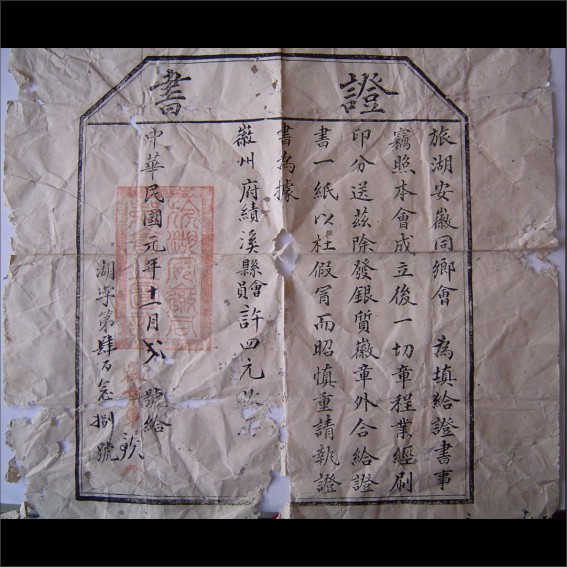 證書
旅湖安徽同鄉會 為填給證書事
竊照本會成立後一切章程業經刷
印分送茲除發銀質徽章外合給證
書一紙以杜假冒而昭慎重請執證
書為據
徽州府績溪縣會員許四元
中華民國元年十一月 號給
湖字第肆百 捌號